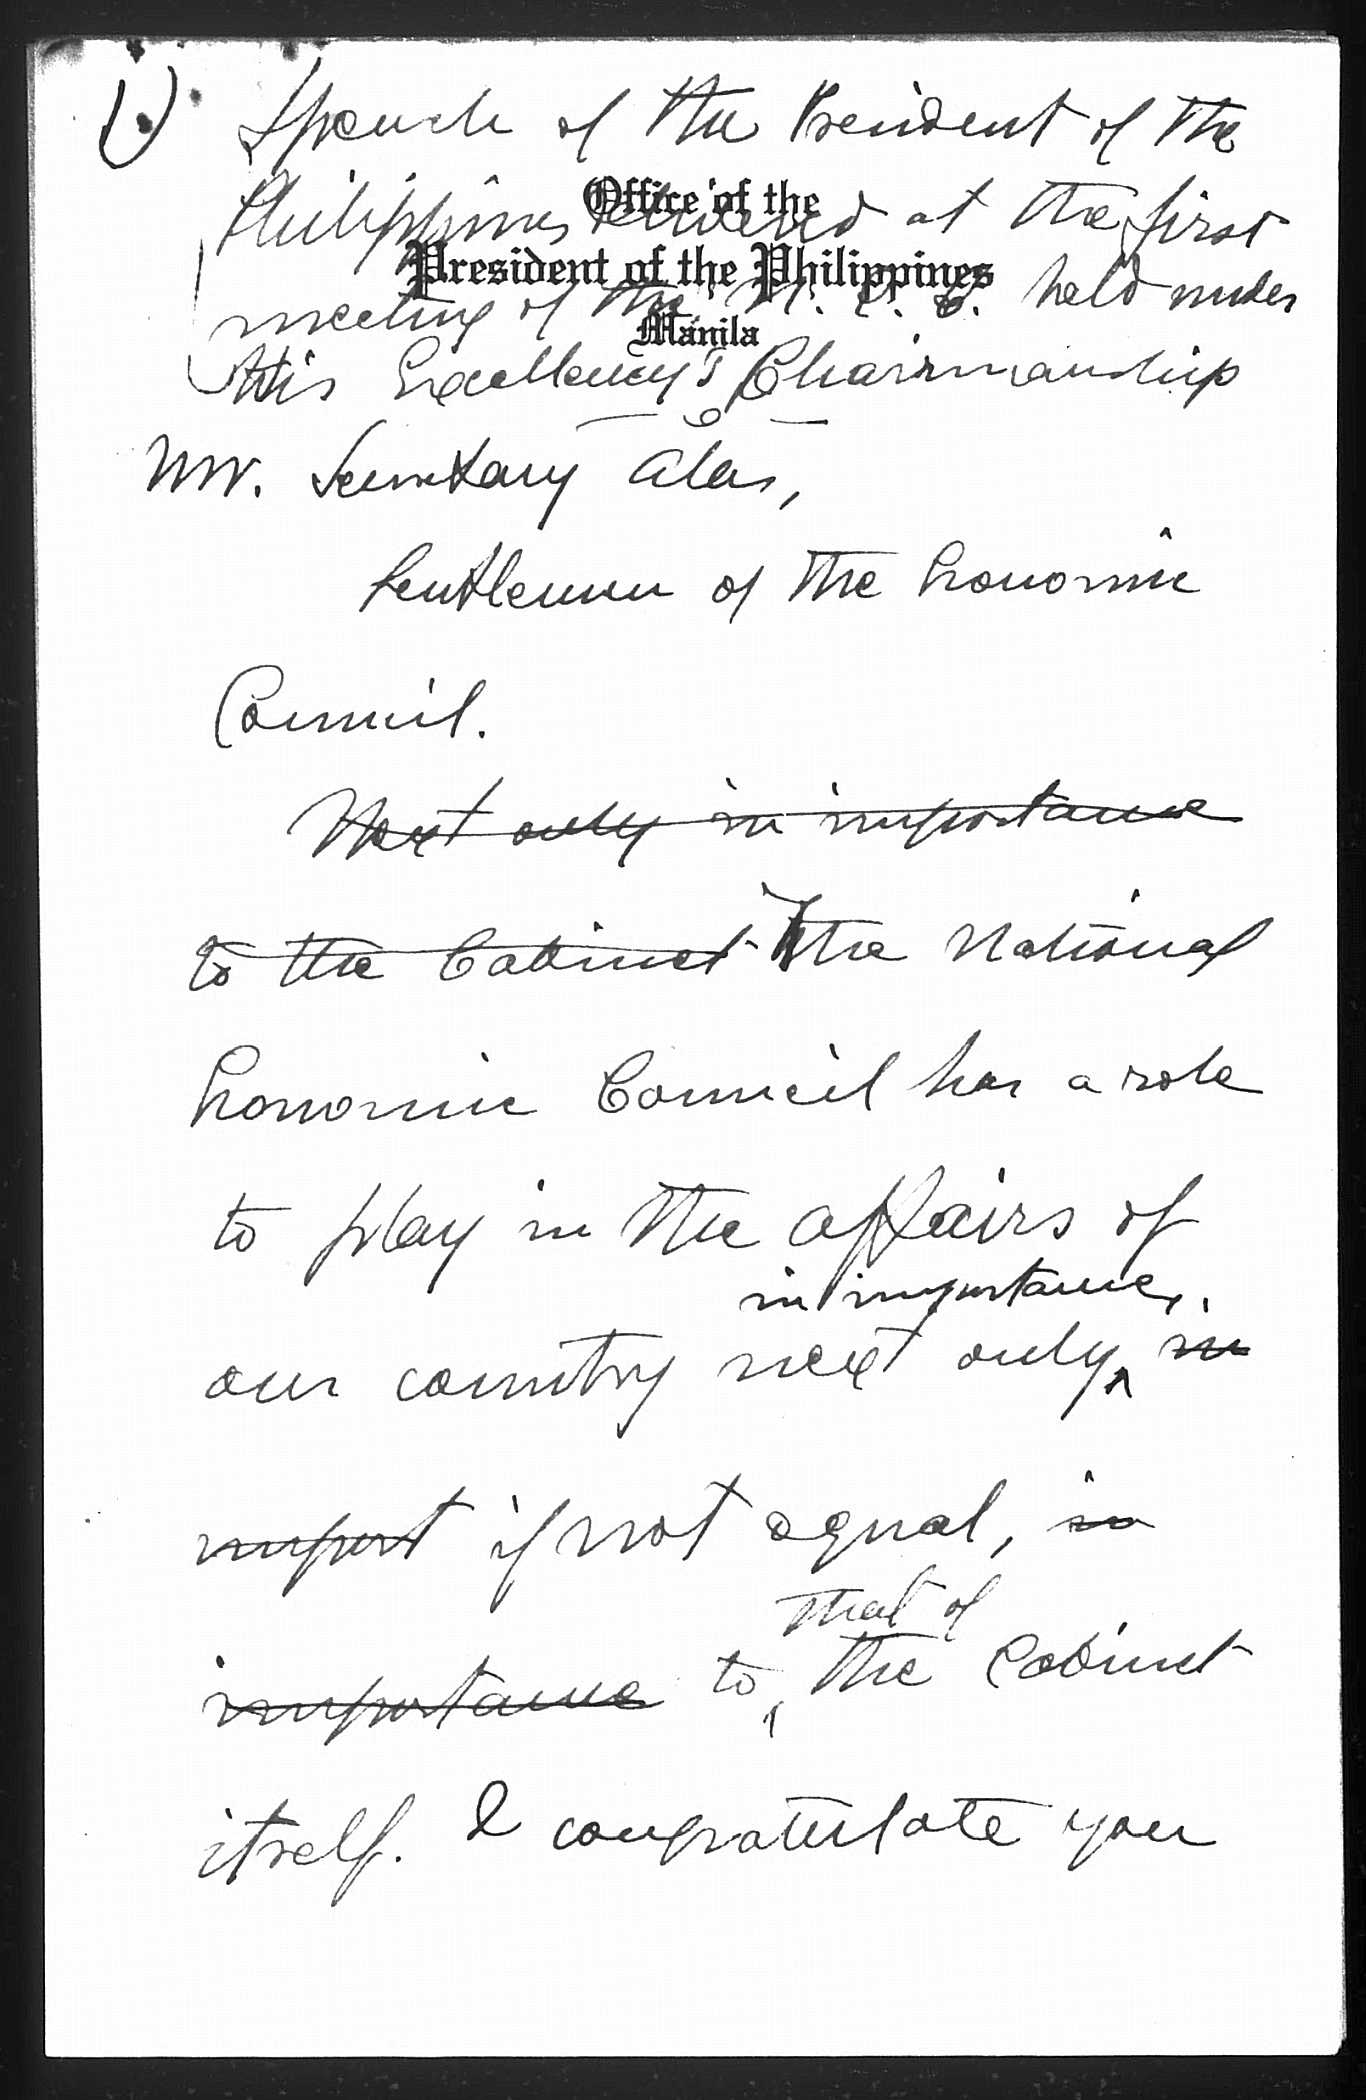 1.) Speech of the President of the
Office of the
Philippines delivered at the first
President of the Philippines
meeting of the N. E. C. held under
Manila
His Excellency's Chairmanship
Mr. Secretary Alas,
Gentlemen of the Economic
Council.
Next only in importance
to the Cabinet The National
Economic Council has a role
to play in the affairs of
in importance,
our country next only in
import if not equal, in
that of
importance to the Cabinet
itself. I congratulate you